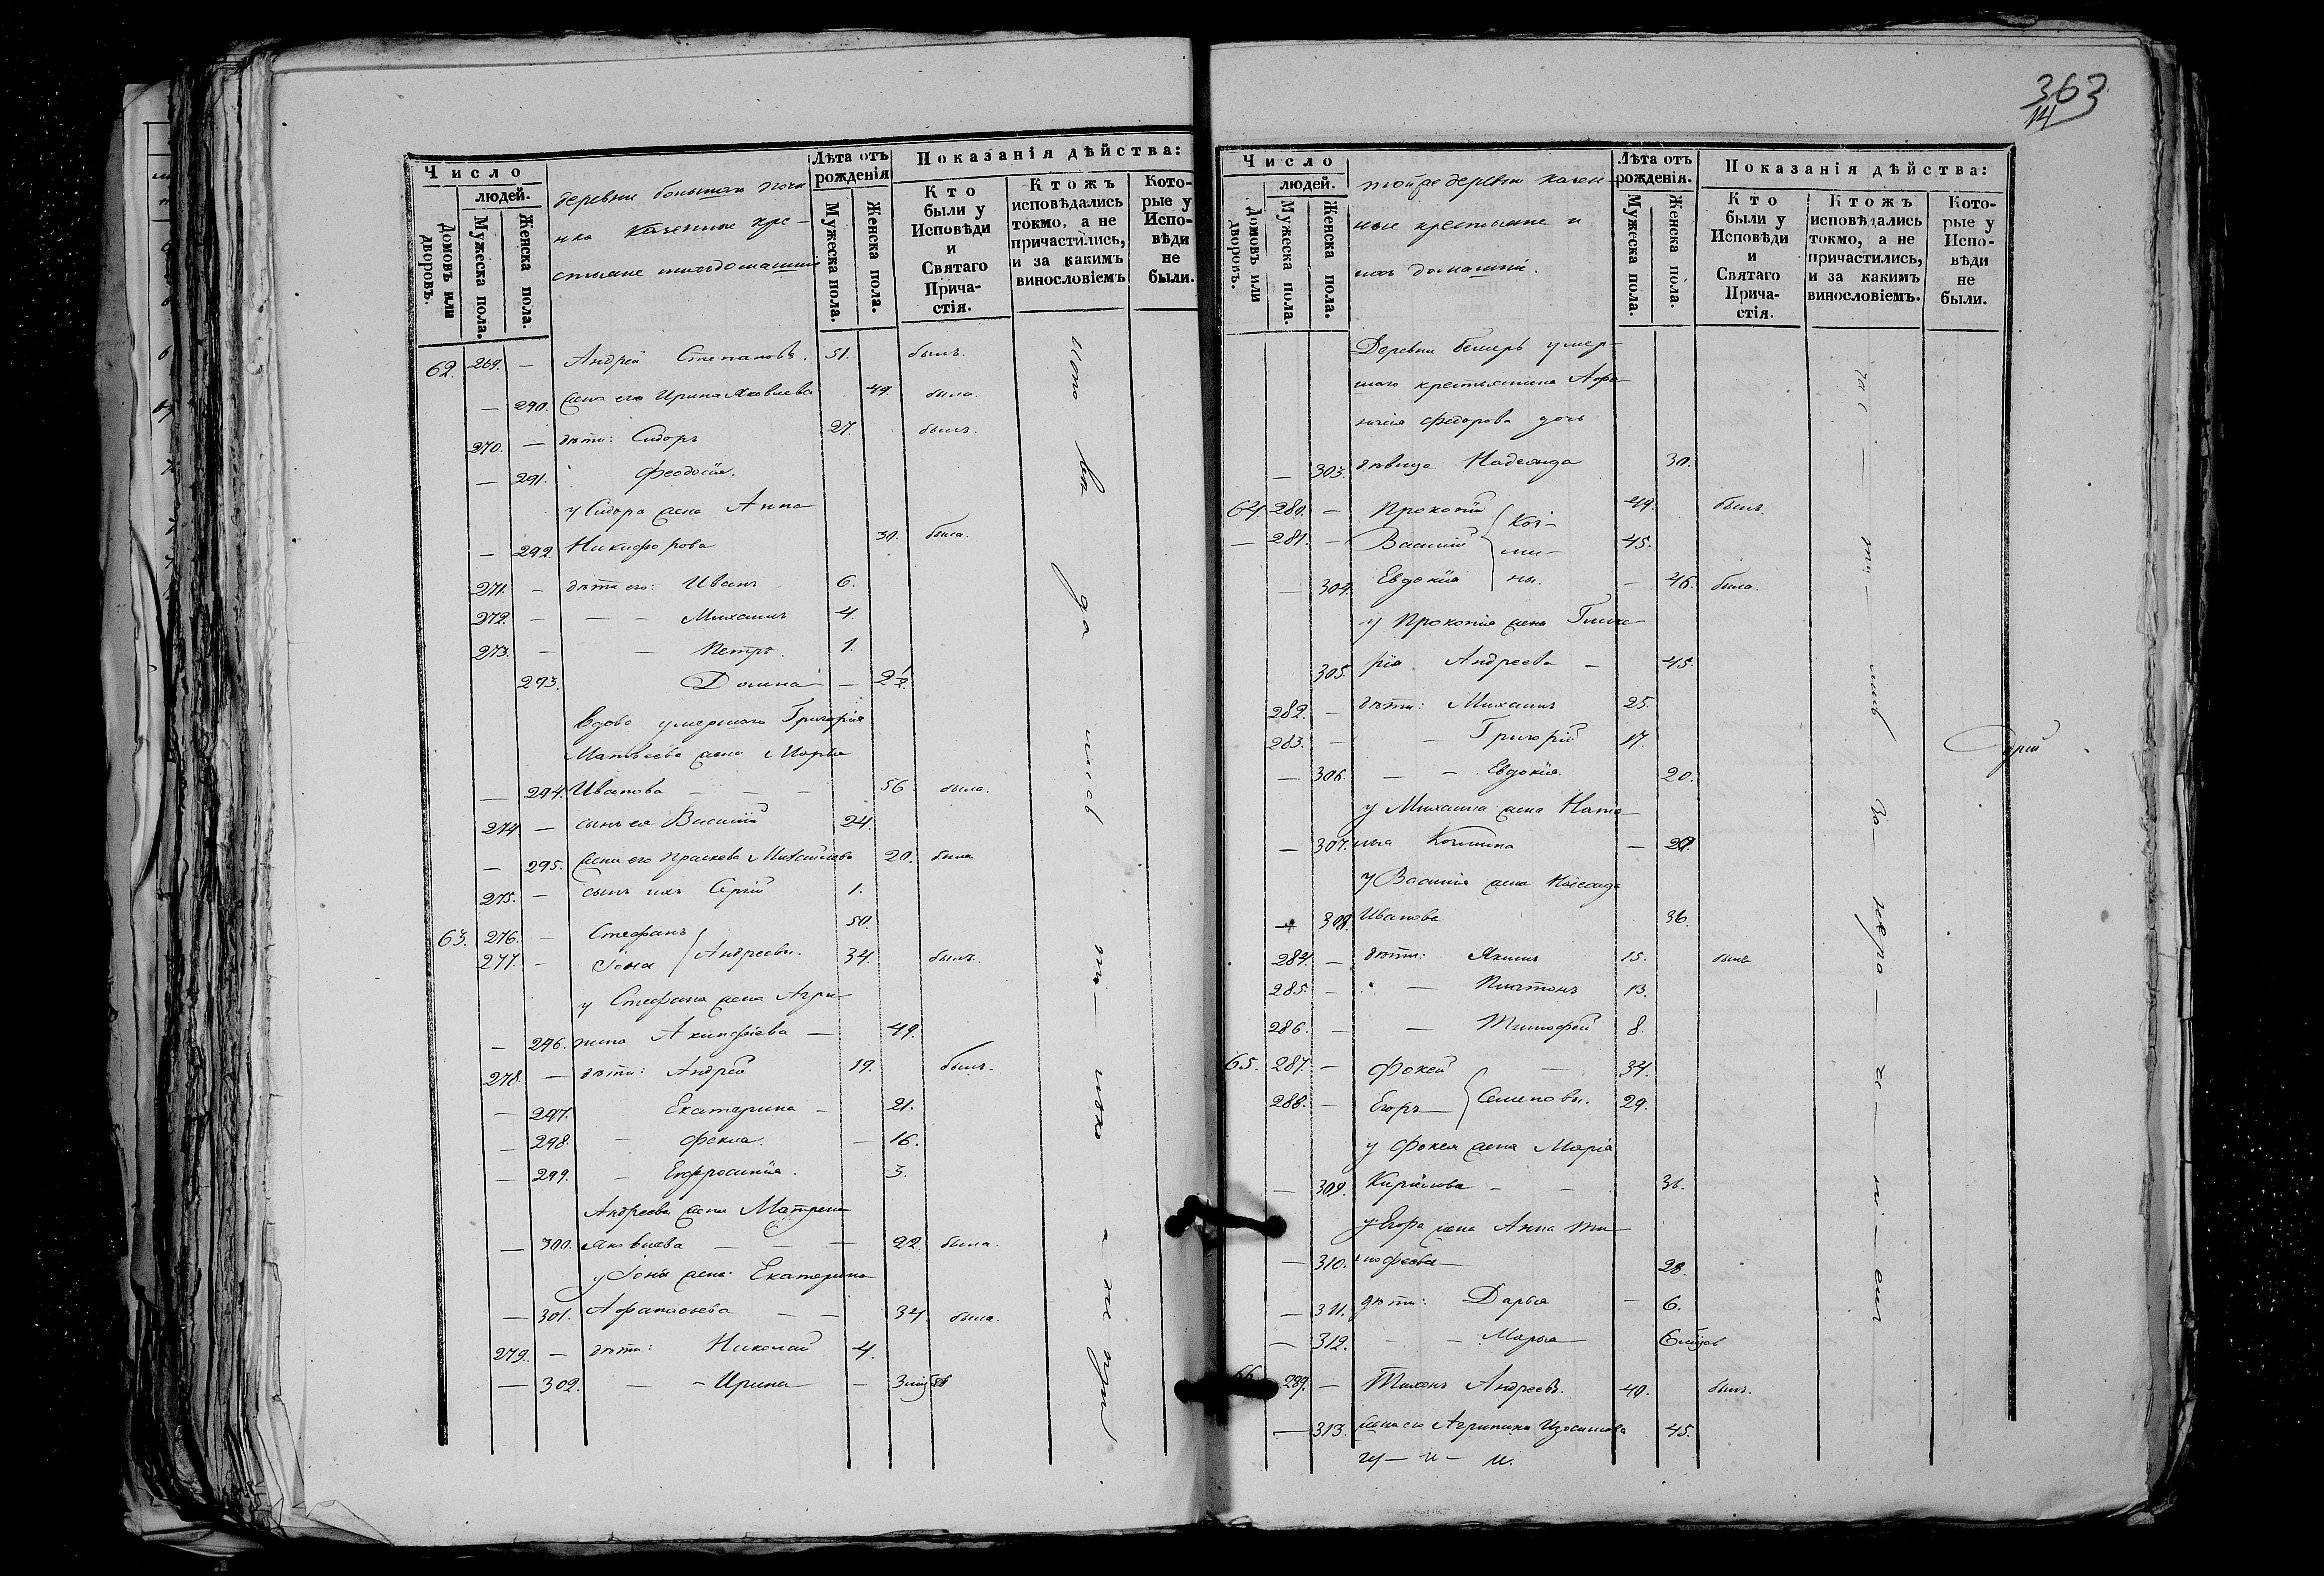 363
14
Число
людей.
Домовъ или дворовъ.
Мужеска пола.
Женска пола.
деревни большаго почи
нка Казенные кре-
стьяне и ихъ домашнии
Лѣта отъ рожденія
Мужеска пола.
Женска пола.
Показанія дѣйства:
Кто были у Исповѣди и Святаго Прича-стія.
Ктожъ исповѣдались токмо, а не причастились, и за какимъ винословіемъ
Кото-рые у Испо-вѣди не были.
62. 269. — Андрей Степановъ. 51. былъ.
— 290. жена его Ирина Яковлева 49. была.
270. — дѣти: Сидоръ 27. былъ.
— 291. Феодосія.
у Сидора жена Анна
— 292. Никифорова 30. была.
271. — дѣти его: Иванъ 6.
272. — — — Михаилъ 4.
273. — — Петръ. 1.
293. Домна — 2½.
вдова умершаго Григорія
Матвѣева жена Марья
— 294. Иванова — — — 56. была.
274. — сынъ ея Василій 24.
— 295. жена его Прасковья Михайлова 20. была
275. — сынъ ихъ Сергій 1.
63. 276. — Стефанъ 50.
277. — Іона Андреевы. 34. былъ.
у Стефана жена Агри-
— 296. пина Акинфіева — 49.
278. — дѣти: Андрей 19. былъ.
— 297. Екатерина — 21.
— 298. — Фекла. — 16.
— 299. — Евфросинія. 3.
Андреева жена Матрена
— 300. Яковлева — — — 22. была.
у Іоны жена Екатерина
— 301. Афанасьева — — 34. была.
279. — дѣти: Николай 4.
— 302. — — Ирина — 3
Число
людей.
Домовъ или дворовъ.
Мужеска пола.
Женска пола.
тойже деревни казен-
ные крестьяне и
ихъ домашніи.
Лѣта отъ рожденія.
Мужеска пола.
Женска пола.
Показанія дѣйства:
Кто были у Исповѣди и Святаго Прича-стія.
Ктожъ исповѣдались токмо, а не причастились, и за какимъ винословіемъ.
Кото-рые у Испо-вѣди не были.
Деревни умер-
шаго крестьянина Афа-
насія Федорова дочь
— 303. дѣвица Надежда 30.
64. 280. — Прокопій 49. былъ.
— 281. — Василій 45.
— 304. Евдокія — 46. была.
у Прокопія жена Глике-
305. рія Андреева — 45.
282. — дѣти: Михаилъ 25.
283. — — Григорій 17.
— 306. — — Евдокія. 20.
у Михаила жена Ната-
— 307. лья —
у Василія жена
308. Иванова 36.
284. — дѣти: Якимъ 15. былъ
285. — — Платонъ 13.
286. — — Тимофей 8.
65. 287. — Фокей — 34.
288. — Егоръ — Семеновы. 29.
у Фокея жена Марія
— 309. Кирилова — — 31.
у Егора жена Анна Ти-
— 310. мофеева — 28.
— 311. дѣти: Дарья — 6.
— 312. — — Марья — 6
66. 289. — Тихонъ Андреевъ. 40. былъ.
— 313. жена его Агрипина Изосимова 45.